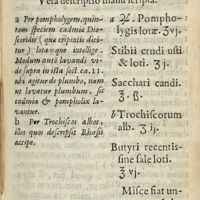 Vera descriptio manu scripta.
a Per pompholygem, quintam
speciem cadmiæ Dioscoridis
( quæ capnitis dicitur )
lotā nanq; intellige.
Modum autē lavandi vide
supra in illa sect. ca. 11.
ubi agitur de plumbo, nam
ut lavatur plumbum, sic
cadmia & pompholix lavantur.
b Per Trochiscos albos,
illos quos descripsit Rhasis
accipe.
a ℞. Pompholygis
lotæ. ʒvj.
Stibii crudi usti
& loti. ʒ ij.
Sacchari candi.
ʒ. ß.
b Trochiscorum
alb. ʒ ij.
Butyri recentissi-
ne sale loti.
ʒ vj.
Misce fiat un-